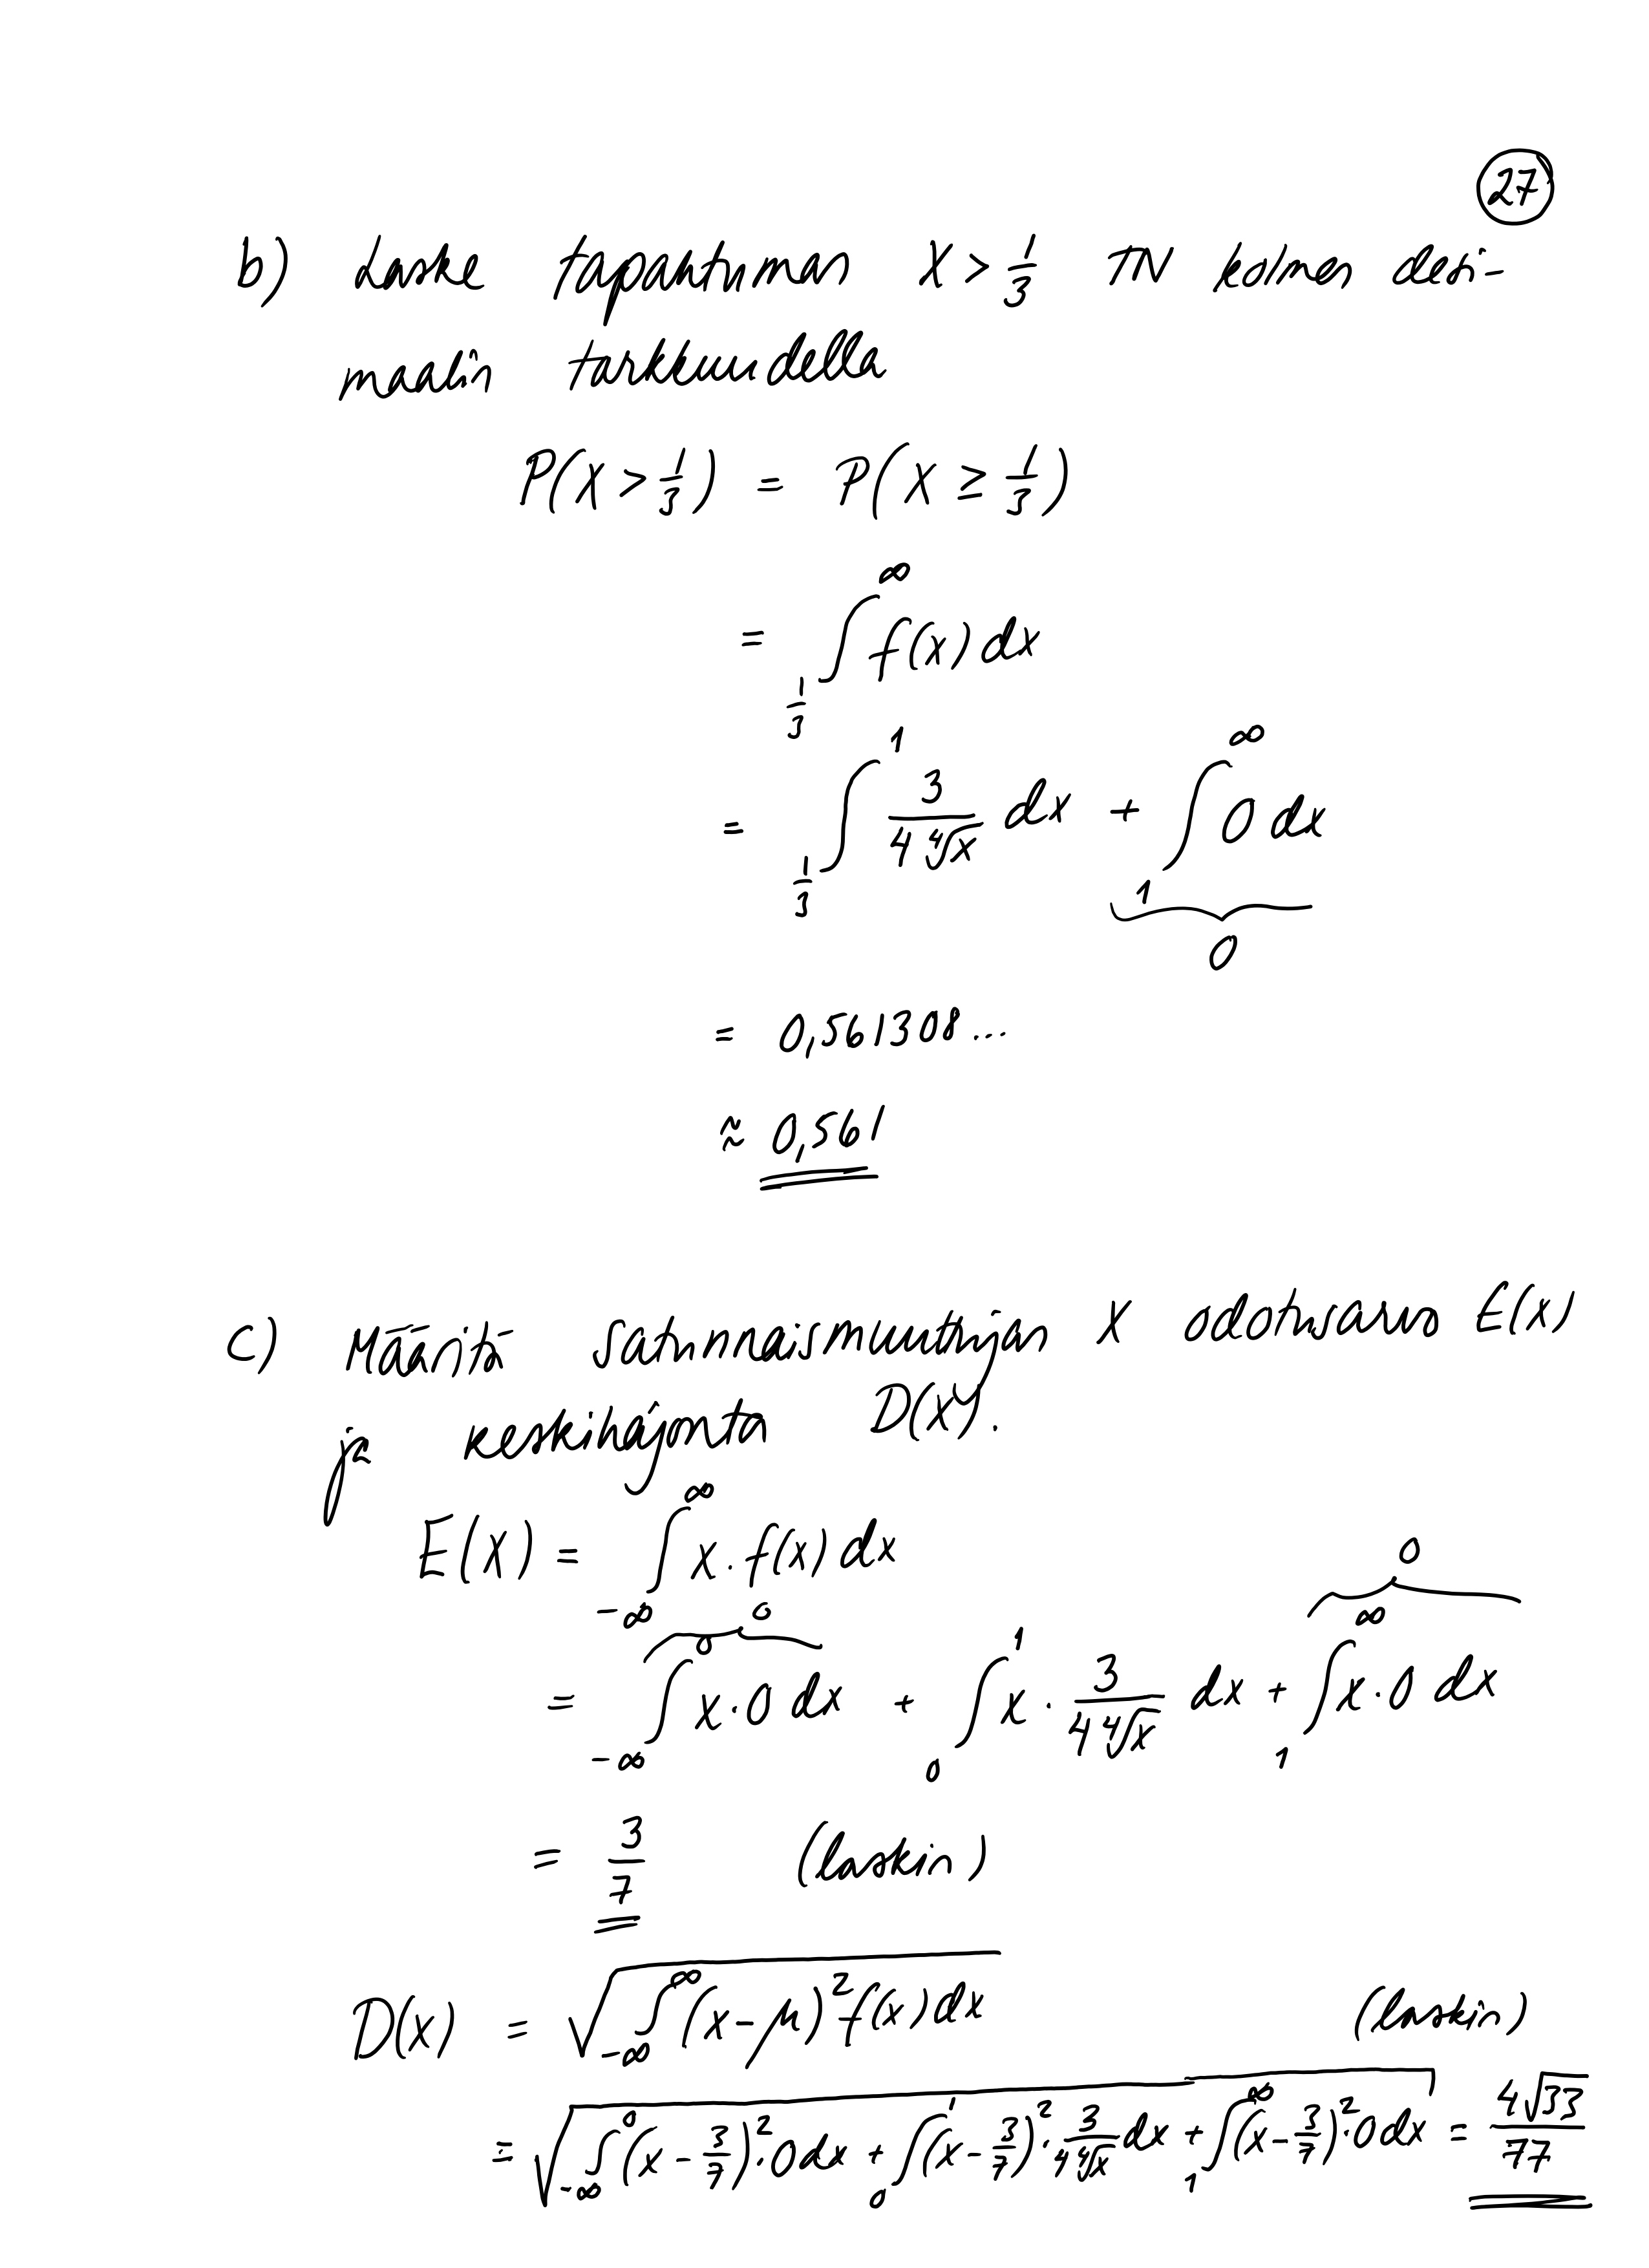 27
b) Laske tapahtuman X > 1/3 TN kolmen desi-
maalin tarkkuudella
P(X > 1/3) = P(X ≥ 1/3)
= ∫_{1/3}^{∞} f(x) dx
= ∫_{1/3}^{1} 3/(4 ∜x) dx + ∫_{1}^{∞} 0 dx
0
= 0,561308...
≈ 0,561
c) Määritä satunnaismuuttujan X odotusarvo E(X)
ja keskihajonta D(X).
E(X) = ∫_{-∞}^{∞} x · f(x) dx
0 0
= ∫_{-∞}^{0} x · 0 dx + ∫_{0}^{1} x · 3/(4 ∜x) dx + ∫_{1}^{∞} x · 0 dx
= 3/7 (laskin)
D(X) = √(∫_{-∞}^{∞} (x - μ)² f(x) dx) (laskin)
= √(∫_{-∞}^{0} (x - 3/7)² · 0 dx + ∫_{0}^{1} (x - 3/7)² · 3/(4 ∜x) dx + ∫_{1}^{∞} (x - 3/7)² · 0 dx) = 4√33/77